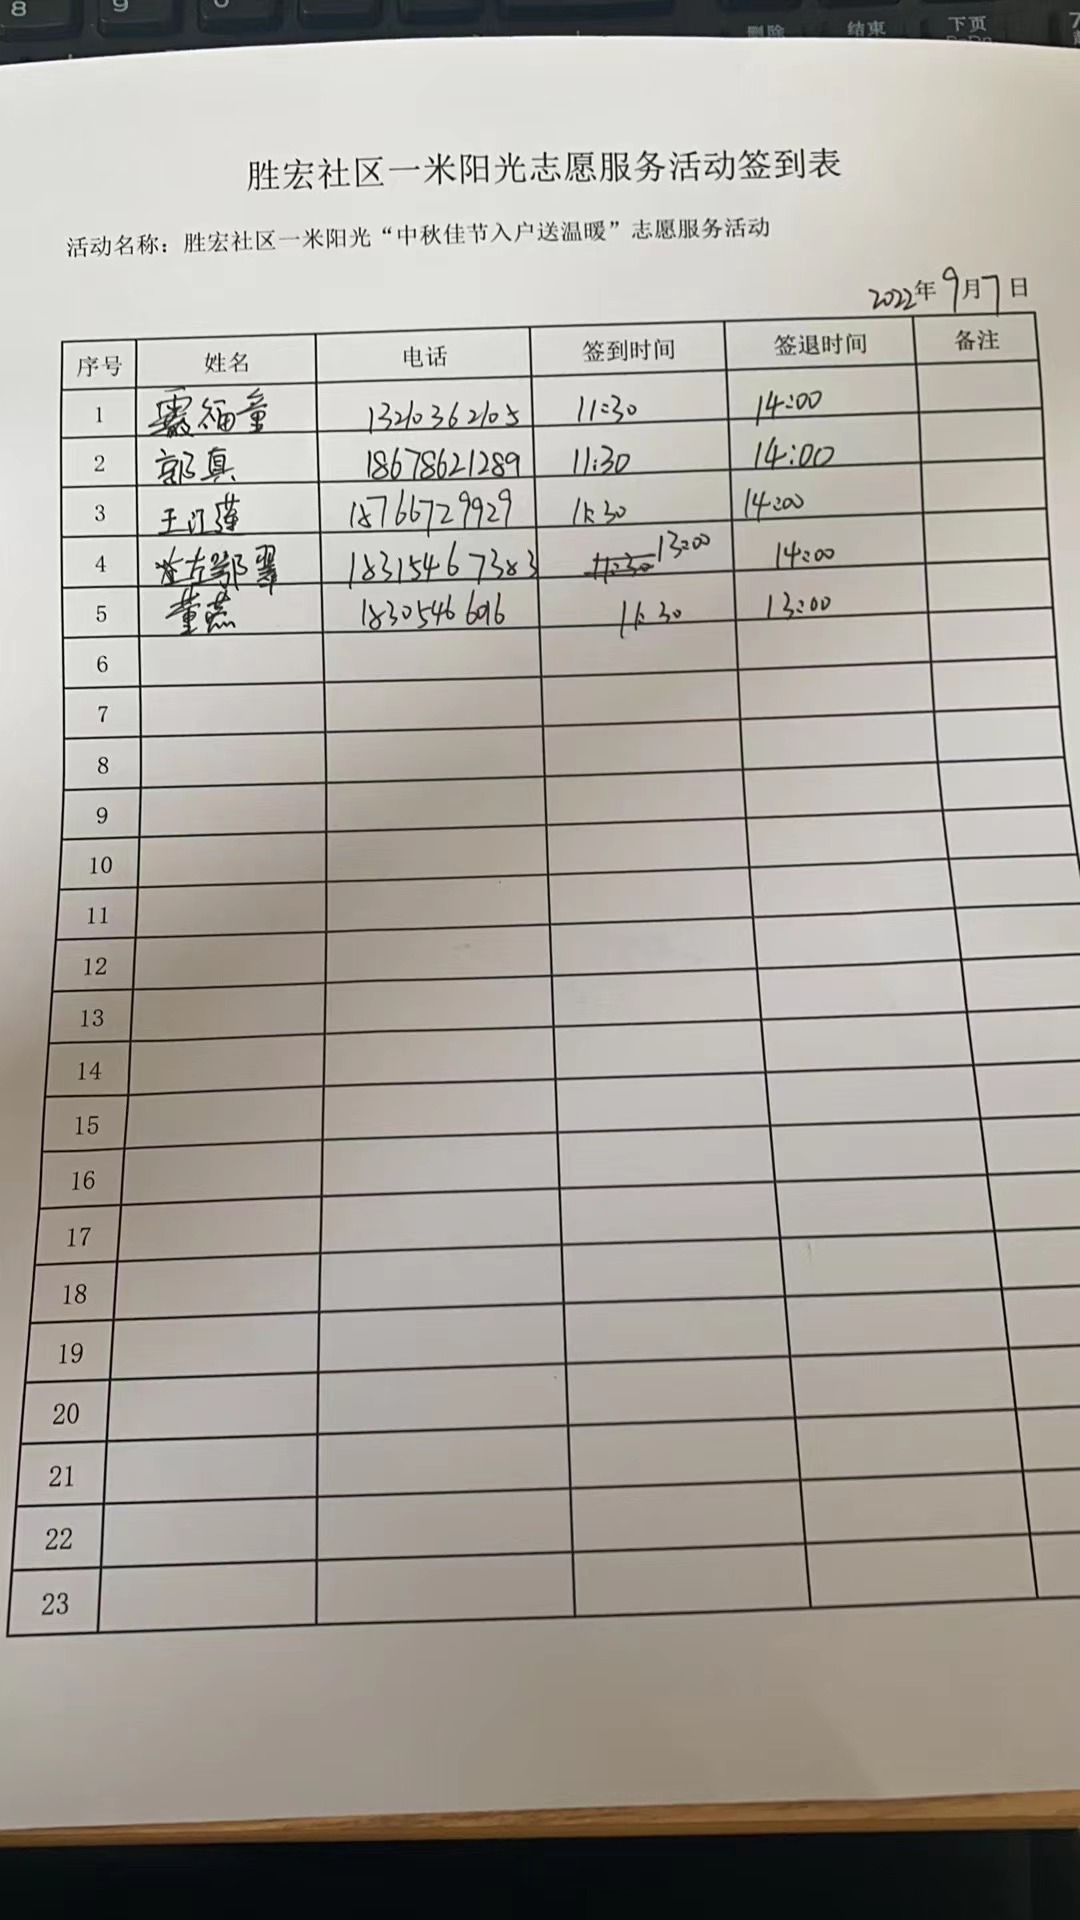 8 9 6
删除 结束 下页
胜宏社区一米阳光志愿服务活动签到表
活动名称：胜宏社区一米阳光“中秋佳节入户送温暖”志愿服务活动
2022年9月7日
序号 姓名 电话 签到时间 签退时间 备注
1 福童 13210362105 11:30 14:00
2 郭真 18678621289 11:30 14:00
3 王江莲 18766729929 11:30 14:00
4 翠 18315467383 11:30 13:00 14:00
5 董燕 11:30 13:00
6
7
8
9
10
11
12
13
14
15
16
17
18
19
20
21
22
23